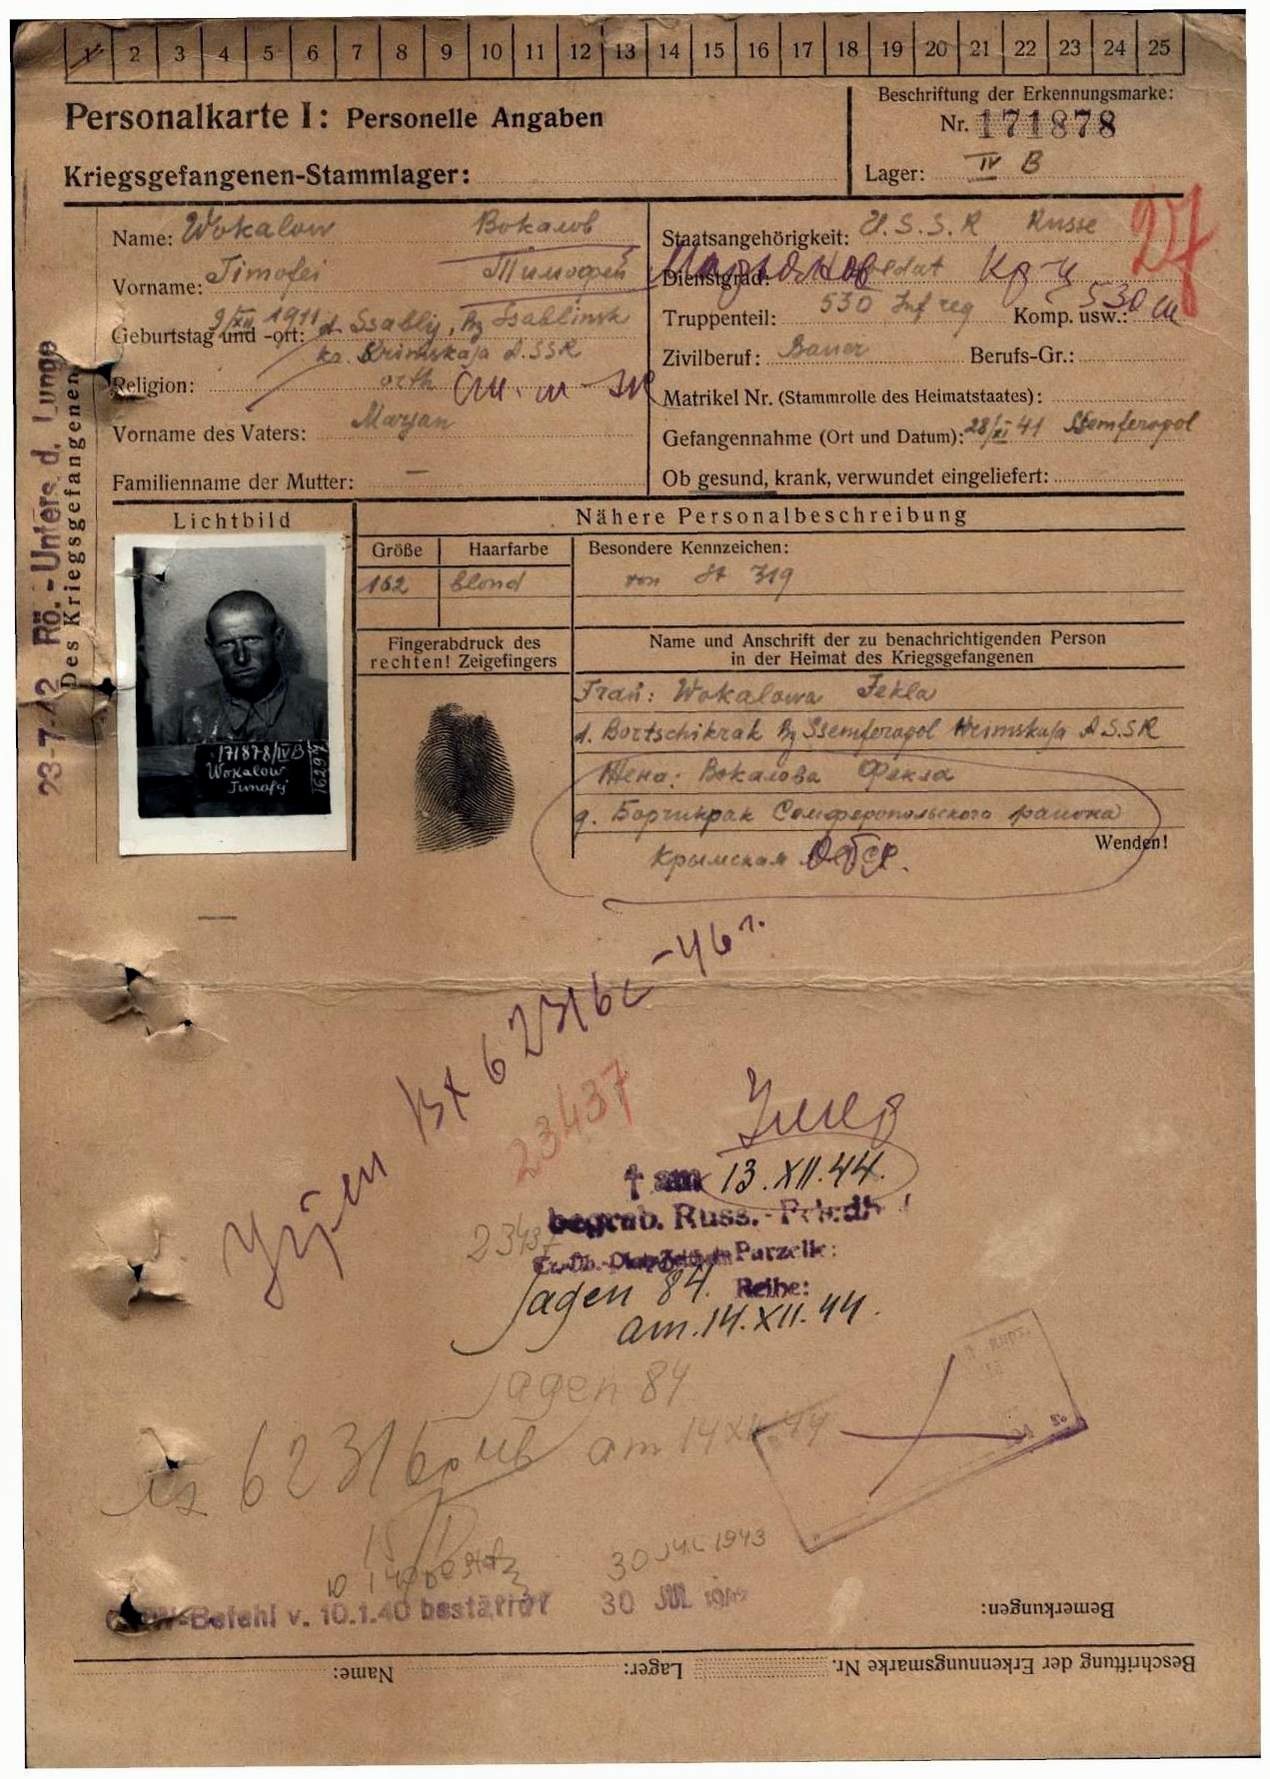 1 2 3 4 5 6 7 8 9 10 11 12 13 14 15 16 17 18 19 20 21 22 23 24 25
Personalkarte I: Personelle Angaben
Kriegsgefangenen-Stammlager:
Beschriftung der Erkennungsmarke:
Nr. 171878
Lager: IV B
27
Name: Wokalow Вокалов
Vorname: Timofei Тимофей
Geburtstag und -ort: 9/XII 1911 d. Ssably, Bz Ssablinsk
Krimskaja A.SSR
Religion: orth
Vorname des Vaters: Marjan
Familienname der Mutter: —
Staatsangehörigkeit: U.S.S.R Russe
Dienstgrad: Soldat
Truppenteil: 530 Inf reg Komp. usw.: 530
Zivilberuf: Bauer Berufs-Gr.:
Matrikel Nr. (Stammrolle des Heimatstaates):
Gefangennahme (Ort und Datum): 28/XI 41 Ssemferopol
Ob gesund, krank, verwundet eingeliefert:
23-7-42 Rö.-Unters. d. Lunge
Des Kriegsgefangenen
Lichtbild
171878/IVB
Wokalow
Timofej
Nähere Personalbeschreibung
Größe Haarfarbe Besondere Kennzeichen:
162 blond von St 319
Fingerabdruck des
rechten! Zeigefingers
Name und Anschrift der zu benachrichtigenden Person
in der Heimat des Kriegsgefangenen
Frau: Wokalowa Fekla
d. Bortschikrak Bz Ssemferopol Krimskaja A.S.SR
Жена: Вокалова Фекла
д. Борчикрак Семферопольского района
Wenden!
Крымская АССР.
Вх 62316с -46г.
23437
Умер
† am 13.XII.44.
begrab. Russ.-Friedh
23437
Parzelle:
Jagen 84. Reihe:
am 14.XII.44.
Jagen 84
am 14 XII.44
62316
30 JUL 1943
OKW-Befehl v. 10.1.40 bestätigt 30 JUL
Bemerkungen:
Beschriftung der Erkennungsmarke Nr. Lager: Name: